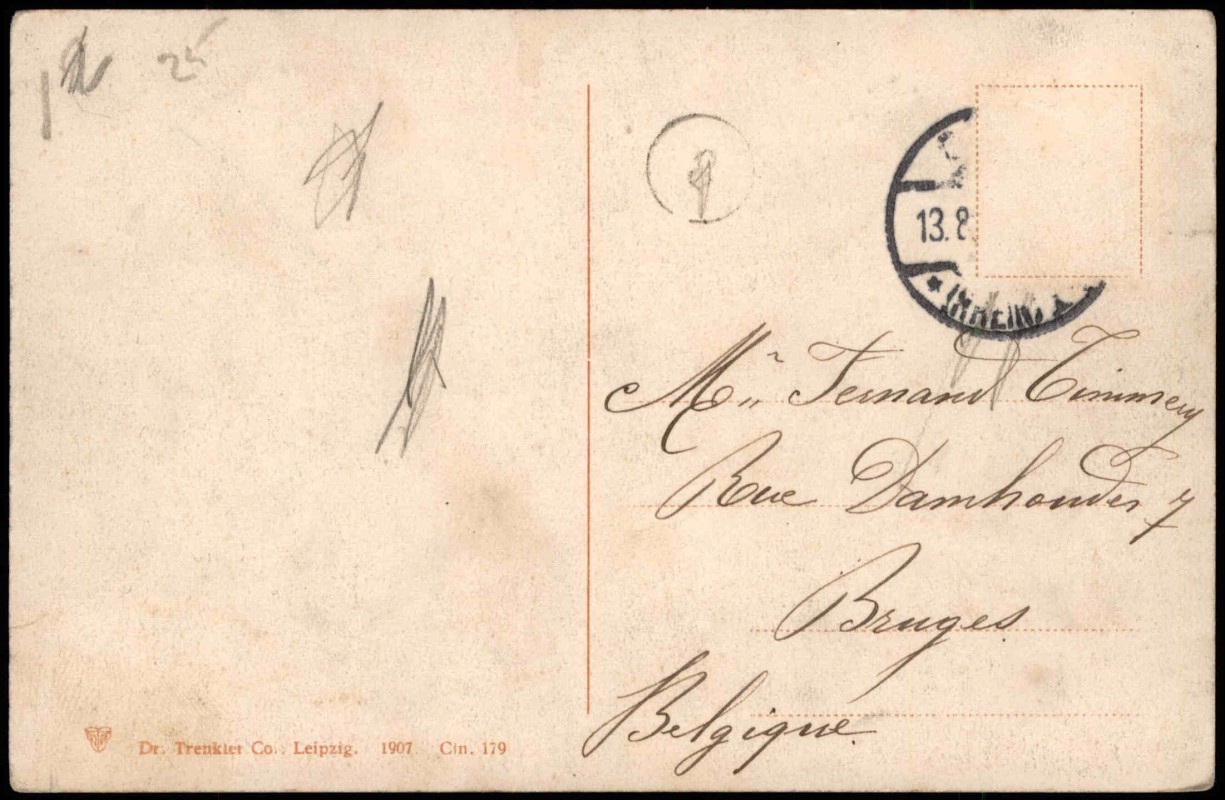 25
13.8
* (RHEIN)
Mr. Fernand Timmery
Rue Damhouder 7
Bruges
Belgique.
Dr. Trenkler Co., Leipzig. 1907 Cin. 179